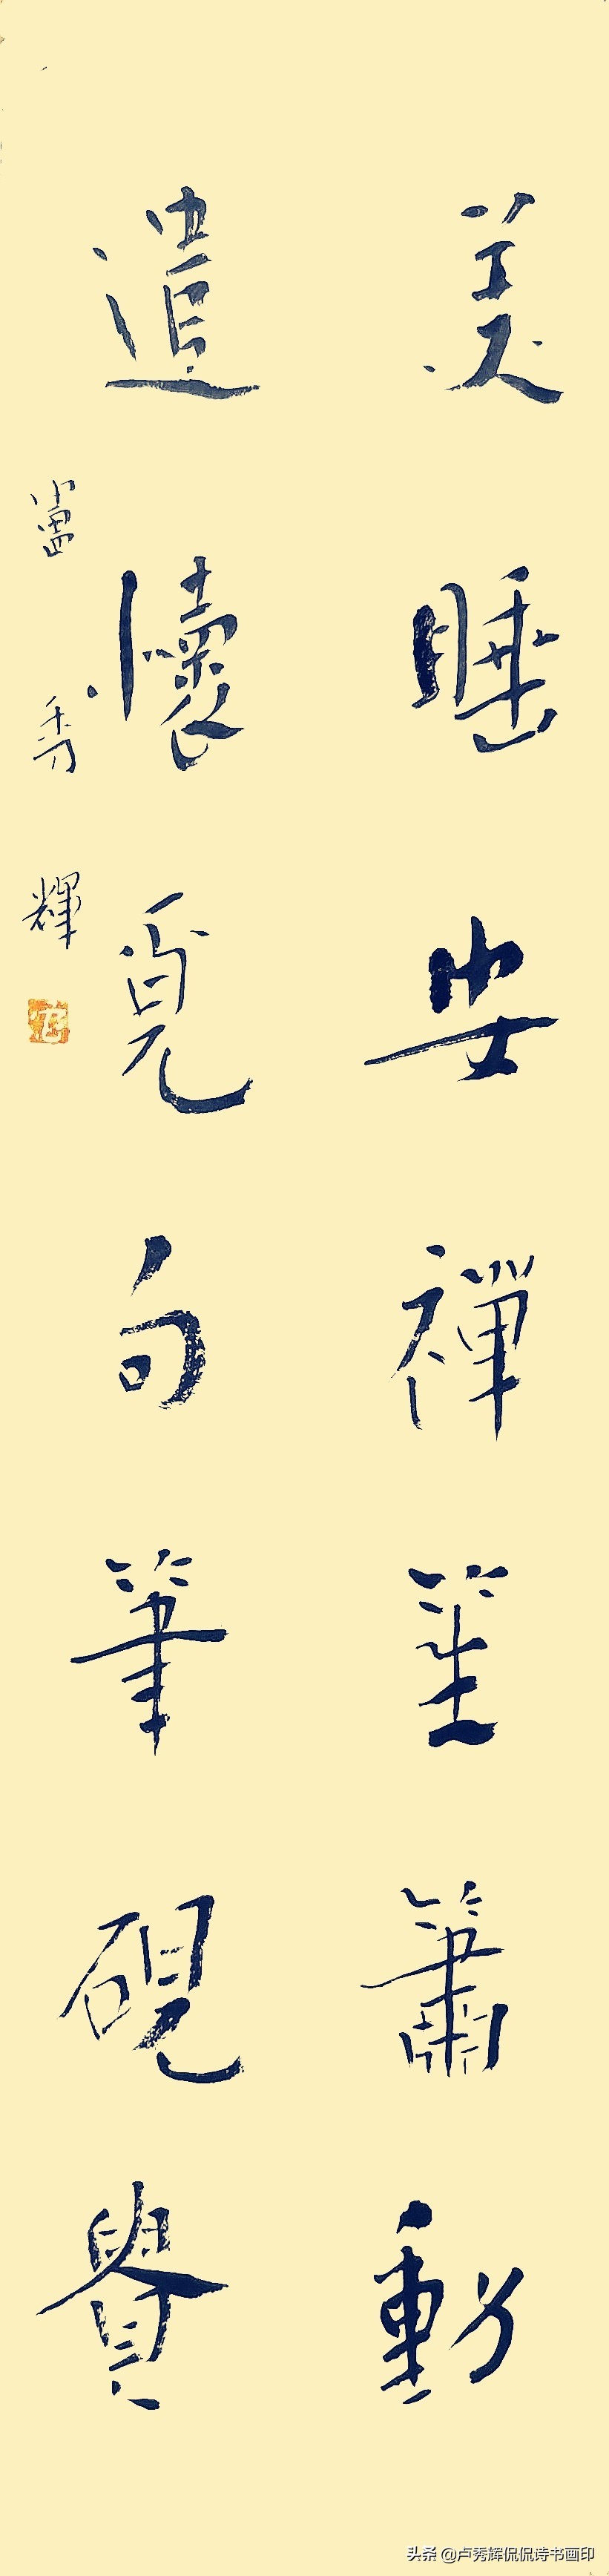 美睡安禪笙簫動
遣懷覓句筆硯
盧秀輝
头条 @卢秀辉侃侃诗书画印